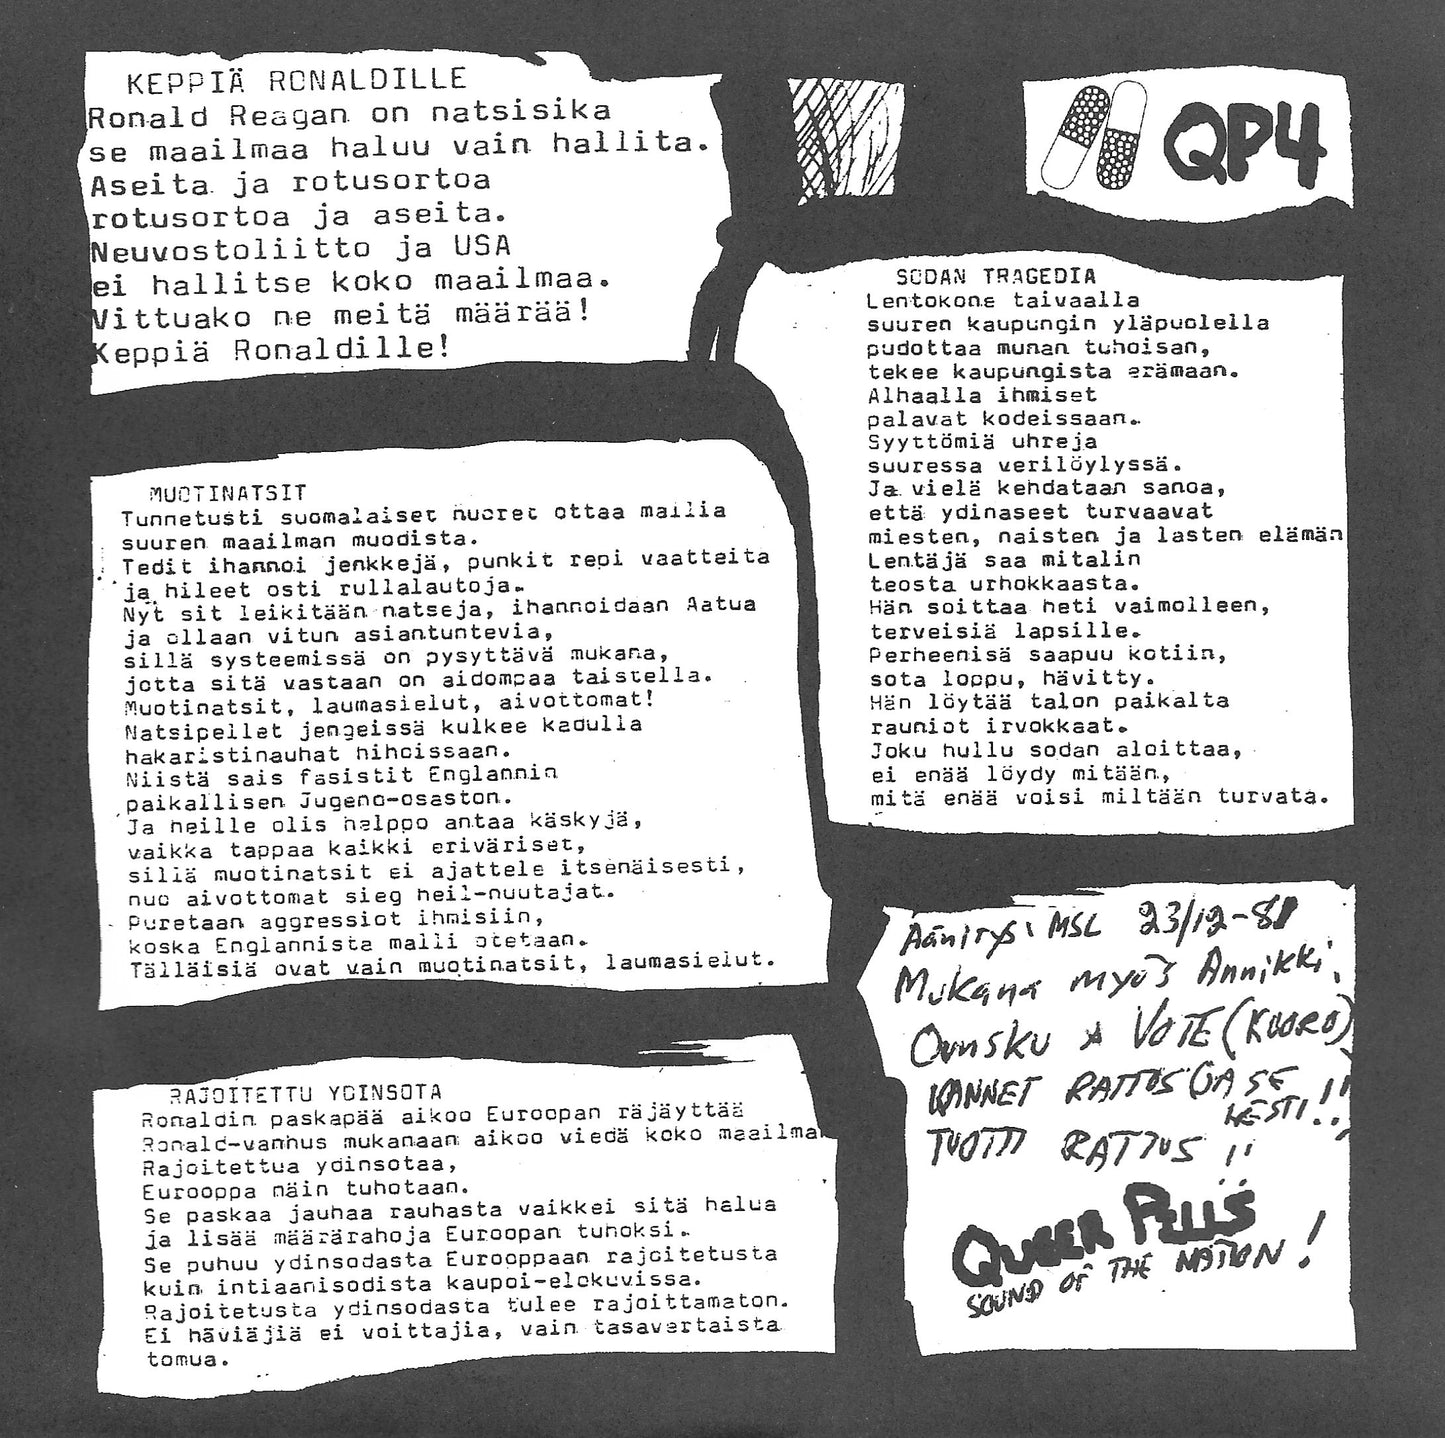 KEPPIÄ RONALDILLE
Ronald Reagan on natsisika
se maailmaa haluu vain hallita.
Aseita ja rotusortoa
rotusortoa ja aseita.
Neuvostoliitto ja USA
ei hallitse koko maailmaa.
Vittuako ne meitä määrää!
Keppiä Ronaldille!
MUOTINATSIT
Tunnetusti suomalaiset nuoret ottaa mallia
suuren maailman muodista.
Tedit ihannoi jenkkejä, punkit repi vaatteita
ja hileet osti rullalautoja.
Nyt sit leikitään natseja, ihannoidaan Aatua
ja ollaan vitun asiantuntevia,
sillä systeemissä on pysyttävä mukana,
jotta sitä vastaan on aidompaa taistella.
Muotinatsit, laumasielut, aivottomat!
Natsipellet jengeissä kulkee kadulla
hakaristinauhat hihoissaan.
Niistä sais fasistit Englannin
paikallisen Jugend-osaston.
Ja heille olis helppo antaa käskyjä,
vaikka tappaa kaikki eriväriset,
sillä muotinatsit ei ajattele itsenäisesti,
nuo aivottomat sieg heil-huutajat.
Puretaan aggressiot ihmisiin,
koska Englannista malli otetaan.
Tälläisiä ovat vain muotinatsit, laumasielut.
RAJOITETTU YDINSOTA
Ronaldin paskapää aikoo Euroopan räjäyttää
Ronald-vanhus mukanaan aikoo viedä koko maailman
Rajoitettua ydinsotaa,
Eurooppa näin tuhotaan.
Se paskaa jauhaa rauhasta vaikkei sitä halua
ja lisää määrärahoja Euroopan tuhoksi.
Se puhuu ydinsodasta Eurooppaan rajoitetusta
kuin intiaanisodista kaupoi-elokuvissa.
Rajoitetusta ydinsodasta tulee rajoittamaton.
Ei häviäjiä ei voittajia, vain tasavertaista
tomua.
QP4
SODAN TRAGEDIA
Lentokone taivaalla
suuren kaupungin yläpuolella
pudottaa munan tuhoisan,
tekee kaupungista erämaan.
Alhaalla ihmiset
palavat kodeissaan.
Syyttömiä uhreja
suuressa verilöylyssä.
Ja vielä kehdataan sanoa,
että ydinaseet turvaavat
miesten, naisten ja lasten elämän
Lentäjä saa mitalin
teosta urhokkaasta.
Hän soittaa heti vaimolleen,
terveisiä lapsille.
Perheenisä saapuu kotiin,
sota loppu, hävitty.
Hän löytää talon paikalta
rauniot irvokkaat.
Joku hullu sodan aloittaa,
ei enää löydy mitään,
mitä enää voisi miltään turvata.
Äänitys: MSL 23/12-81
Mukana myös Annikki,
Ounsku & VOTE (KUORO)
KANNET RATTUS (JA SE
KESTI!!
TUOTTI RATTUS !!
QUEER PILLS
SOUND OF THE NATION!